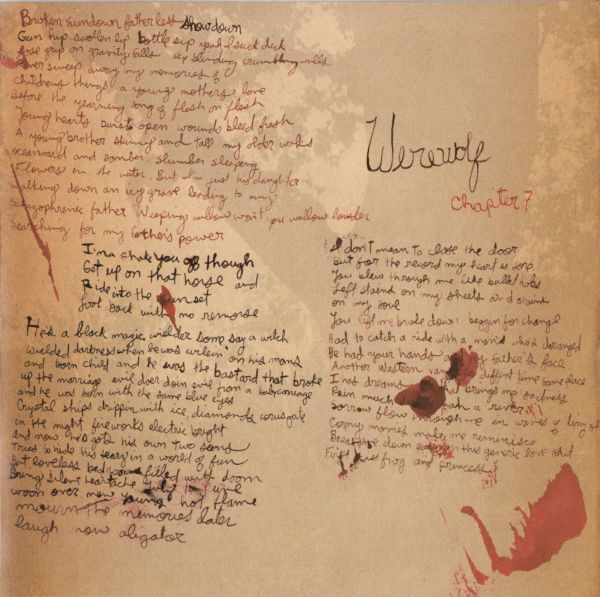 Broken sundown fatherless showdown
Gun hip swollen lip bottle sip yeah I suck dick
lose grip on gravity falls sky blinding crumbling walls
River sweep away my memories of
Children's things a young mother's love
Before the yearning song of flesh on flesh
Young hearts burst open wounds bleed fresh
A young brother skinny and tall my older walks
oceanward and somber slumber sleeping
Flowers in the water. But I'm just his daughter
walking down an icy grave leading to my
Schizophrenic father Weeping willow won't you wallow louder
Searching for my father's power
I'ma shake you off though
Get up on that horse and
Ride into the sunset
Look back with no remorse
He's a black magic wielder some say a witch
wielded darkness when he was in his mom's
and born child and he was the bastard that broke
up the marriage evil doer doin evil from a baby carriage
and he was born with the same blue eyes
Crystal ships drippin with ice, diamonds coruscate
in the night fireworks electric bright
and now he's got his own two sons
Tries to hide his tears in a world of fun
But loveless bedroom filled with doom
Bring silent heartache July to June
woon over new young hot flame
mourn the memories later
laugh now aligator
Werewolf
Chapter 7
I don't mean to close the door
but for the record my heart is sore
You blew through me like bullet holes
Left stains on my sheets and stains
on my soul
You left me broke down beggin for change
Had to catch a ride with a man who's deranged
He had your hands and my father's face
Another Western vampire different time same place
I had dreams that brings me sadness
Pain much deep a river
Sorrow flow through me in waves of
Corny movies make me reminisce
Break me down easy on this generic love shit
First kiss frog and princess